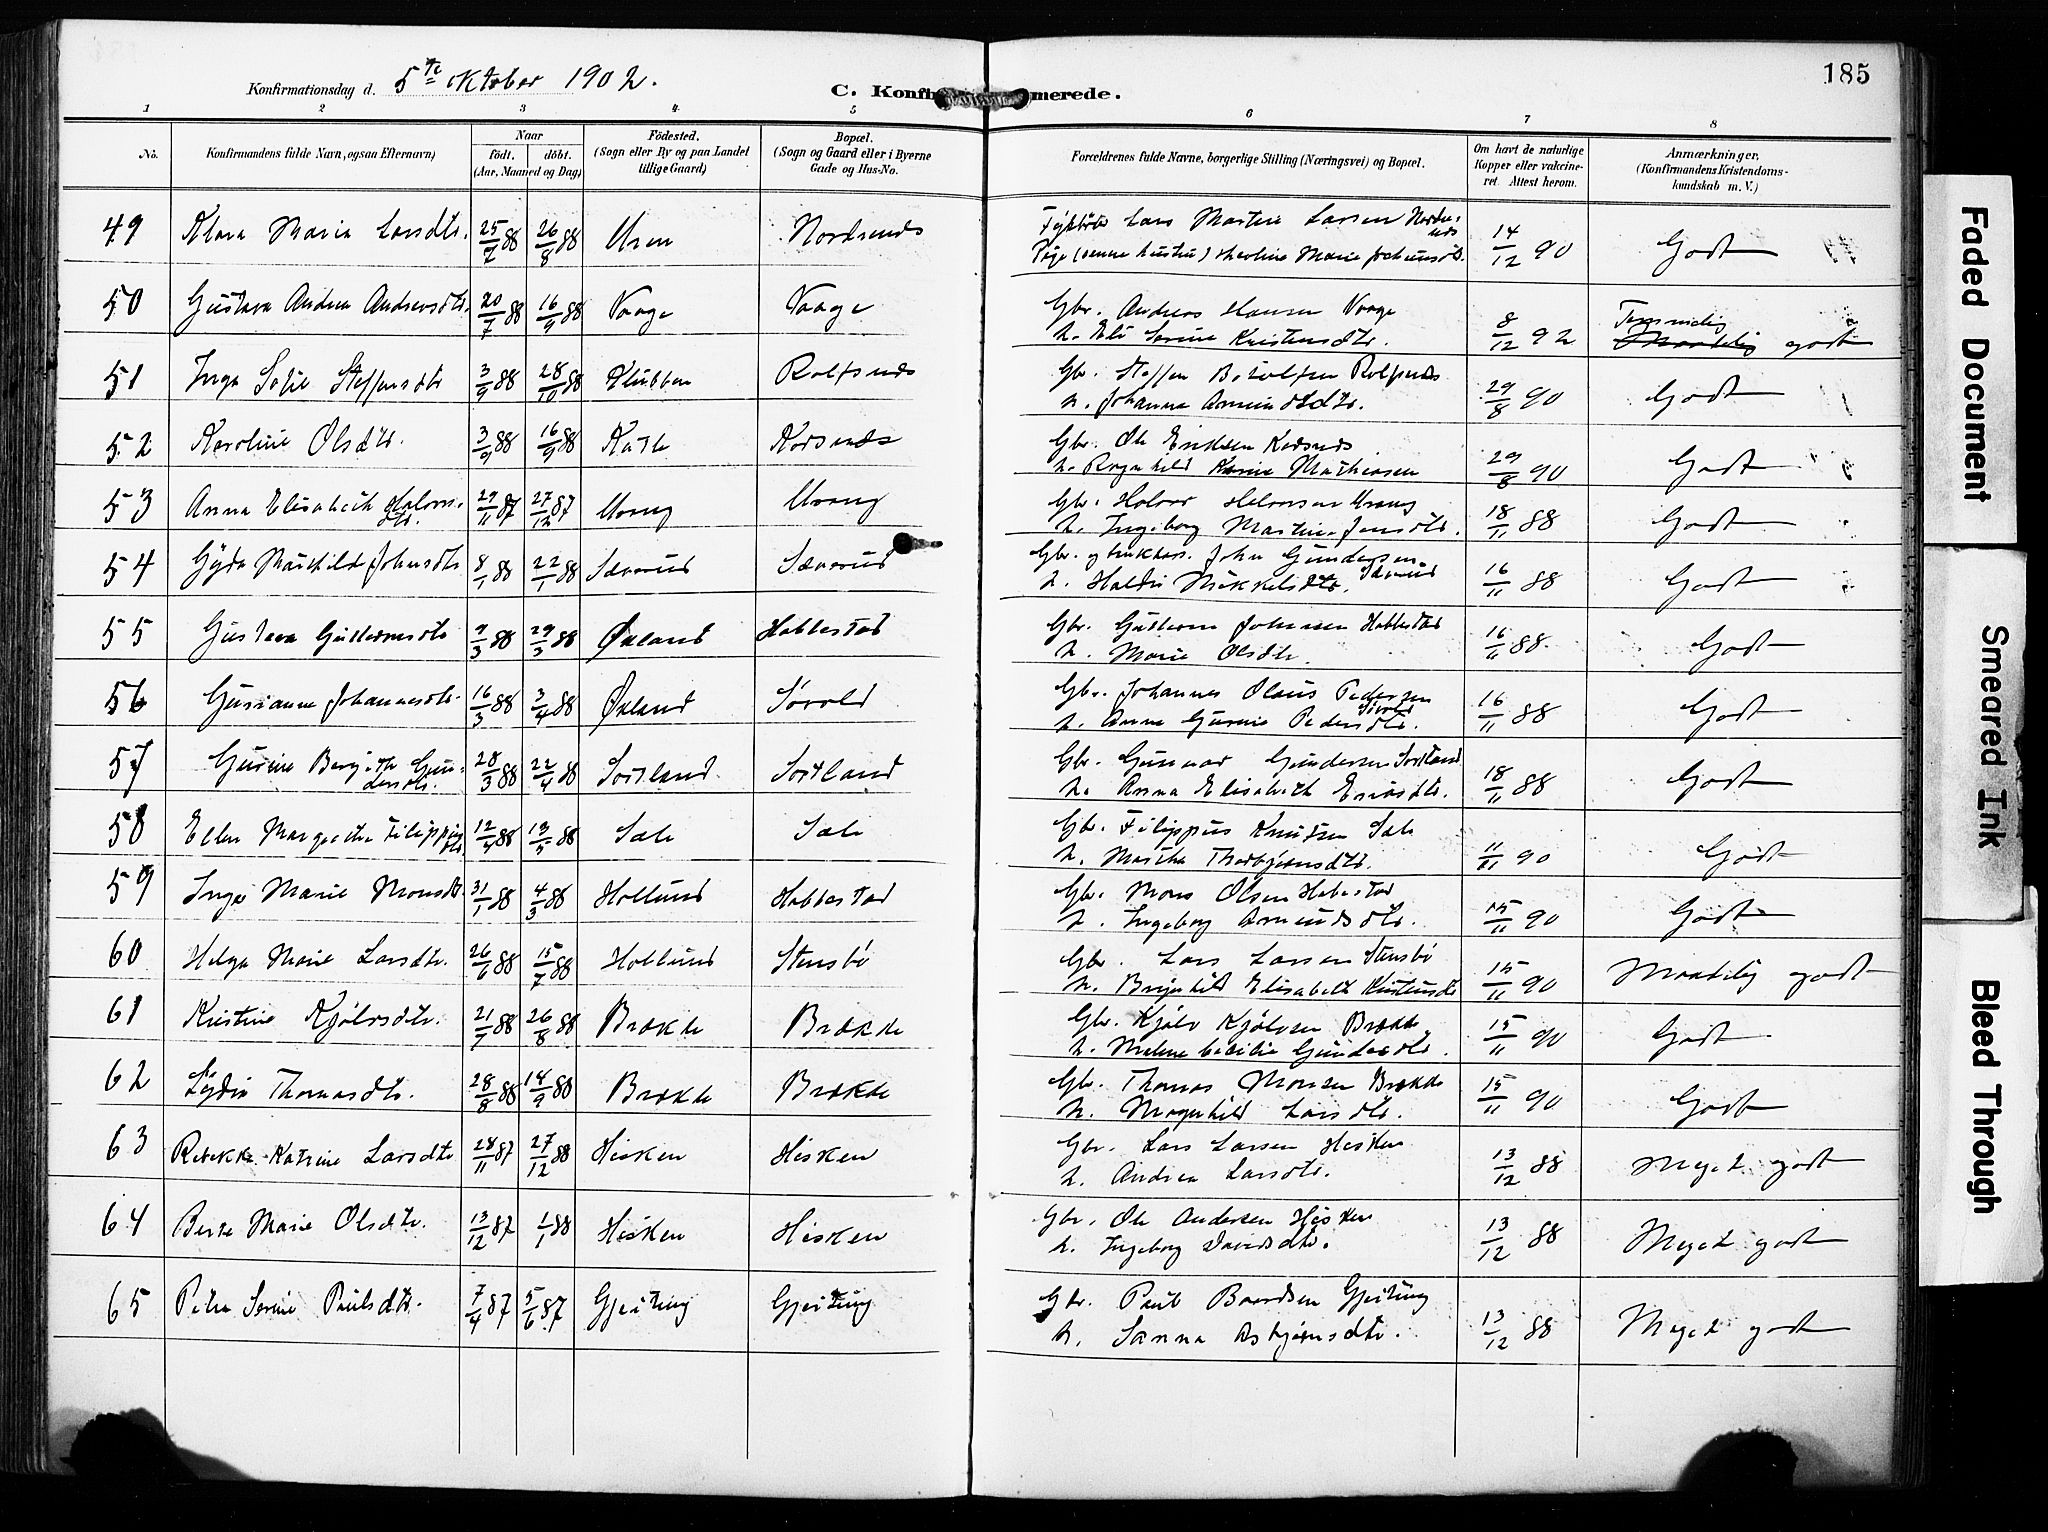 185
Konfirmationsdag d. 5te Oktober 1902.
C. Konfir merede.
1 2 3 4 5 6 7 8
No. Konfirmandens fulde Navn, ogsaa Efternavn) Naar født. døbt. (Aar, Maaned og Dag) Fødested. (Sogn eller By og paa Landet tillige Gaard) Bopæl. (Sogn og Gaard eller i Byerne Gade og Hus-No. Forældrenes fulde Navne, borgerlige Stilling (Næringsvei) og Bopæl. Om havt de naturlige Kopper eller vakcineret. Attest herom. Anmærkninger. (Konfirmandens Kristendomskundskab m. V.)
49 Klara Maria Larsdtr. 25/7 88 26/8 88 Uren Nordsnæs Lars Martin Larsen Nordsnæs 14/12 90 Godt
Pige (senere hustru) Marie
50 Gustava Andrea Andreasdtr. 20/7 88 16/9 88 Vaage Vaage Gbr. Andreas Hansen Vaage 8/12 92 Temmelig godt
h. Eli Serine Kristensdtr.
51 Inga Sofie Steffensdtr 3/9 88 28/10 88 Klubben Rolfsnæs Gbr. Steffen Rolfsnæs 29/8 90 Godt
h. Johanna Amundsdtr.
52 Karoline Olsdtr. 3/9 88 16/9 88 Korsnæs Gbr. Ole Eriksen Korsnæs 29/8 90 Godt
h. Ragnhild Karine Mathiasen
53 Anna Elisabeth Halvorsdtr. 29/11 87 27/12 87 Urang Urang Gbr. Halvor Halvorsen Urang 18/11 88 Godt
h. Ingeborg Martine Jensdtr.
54 Gyda Mathilde Johnsdtr 8/1 88 22/1 88 Sæverud Sæverud Gbr. og John Gundersen Sæverud 16/11 88 Godt
h. Haldis Mikkelsdtr.
55 Gustava Guttormsdtr 9/3 88 29/3 88 Økland Habbestad Gbr. Guttorm Johnsen Habbestad 16/11 88 Godt
h. Marie Olsdtr.
56 Gurianne Johannesdtr. 16/3 88 3/4 88 Økland Sørvold Gbr. Johannes Olaus Pedersen 16/11 88 Godt
h. Anne Gurine Pedersdtr.
57 Gurine Bergithe Gundersdtr. 28/3 88 22/4 88 Sortland Sortland Gbr. Gunnar Gundersen Sortland 18/11 88 Godt
h. Anna Elisabeth Eriksdtr.
58 Ellen Margrethe Filippusdtr. 12/4 88 13/5 88 Sæle Sæle Gbr. Filippus Knutsen Sæle 11/11 90 Godt
h. Martha Thorbjørnsdtr.
59 Inga Marie Monsdtr. 31/1 88 4/3 88 Hollund Habbestad Gbr. Mons Olsen Habestad 15/11 90 Godt
h. Ingeborg Amundsdtr.
60 Helga Marie Larsdtr. 26/6 88 15/7 88 Hollund Stensbø Gbr. Lars Larsen Stensbø 15/11 90 Maadelig godt
h. Elisabeth Kristensdtr
61 Kristine Kjølvsdtr. 21/7 88 26/8 88 Brække Brække Gbr. Kjølv Kjølvsen Brække 15/11 90 Godt
h. Malene Cecilie Gundersdtr.
62 Lydia Thomasdtr. 28/8 88 14/9 88 Brække Brække Gbr. Thomas Monsen Brække 15/11 90 Godt
h. Magnhild Larsdtr.
63 Rebekka Katrine Larsdtr 28/11 87 27/12 88 Hisken Hisken Gbr. Lars Larsen Hisken 13/12 88 Meget godt
h. Andrea Larsdtr.
64 Berte Marie Olsdtr. 13/12 87 1/1 88 Hisken Hisken Gbr. Ole Andersen Hisken 13/12 88 Meget godt
h. Ingeborg Davidsdtr.
65 Petra Serine Paulsdtr. 7/4 87 5/6 87 Gjeitung Gjeitung Gbr. Paul Baardsen Gjeitung 13/12 88 Meget godt
h. Sanna Asbjørnsdtr.
Faded Document
Smeared Ink
Bleed Through